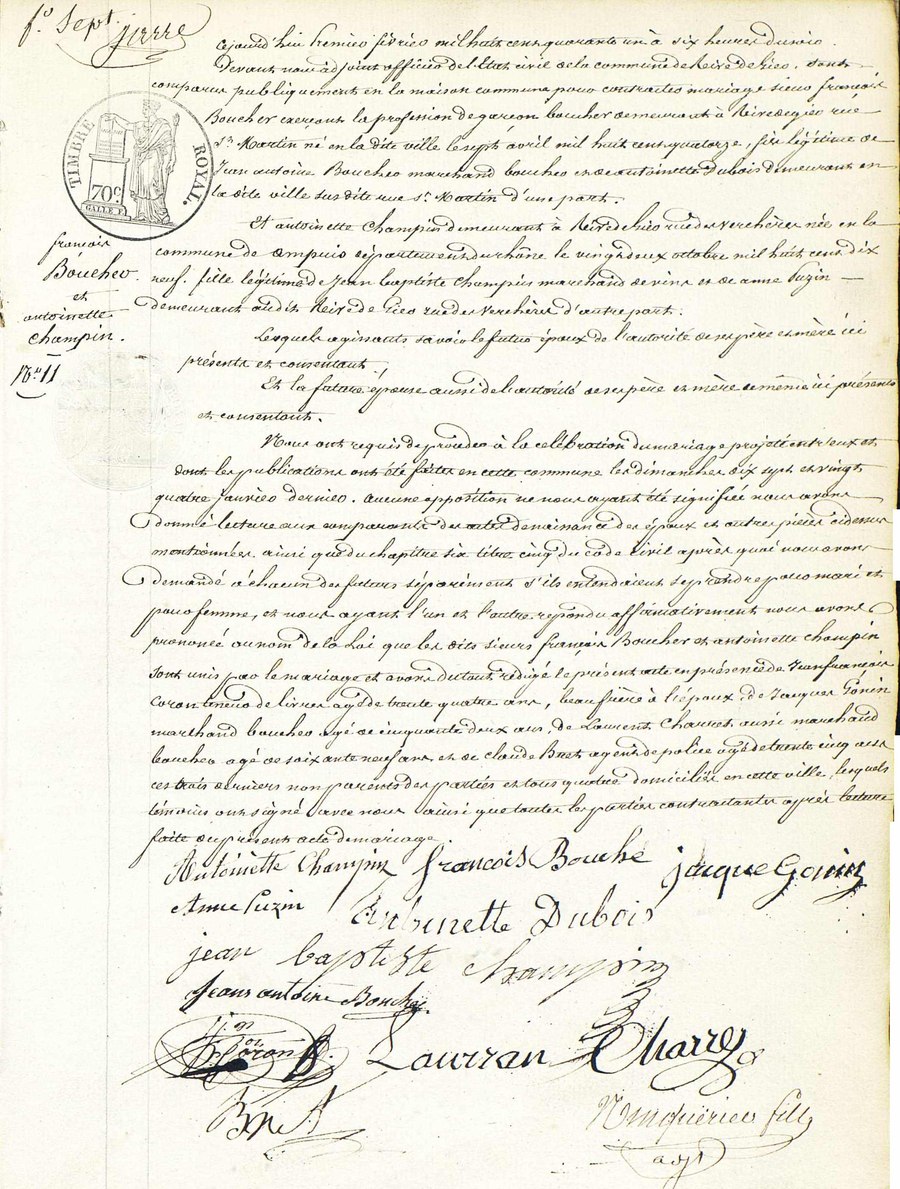 fo. Sept.
pierre
TIMBRE ROYAL.
70c.
GALLE F.
françois
Boucher
et
antoinette
champin.
No. 11
cejourd'hui premier février mil huit cent quarante un à six heures du soir.
Devant nous adjoint officier de l'Etat civil de la commune de Rive de Gier. sont
comparus publiquement en la maison commune pour contracter mariage sieur françois
Boucher exerçant la profession de garçon boucher demeurant à Rive de gier rue
St. Martin né en la dite ville le sept avril mil huit cent quatorze, fils légitime de
Jean antoine Boucher marchand boucher et de antoinette Dubois demeurant en
la dite ville sus dite rue St. Martin d'une part.
Et antoinette Champin demeurant à Rive de Gier rue des verchères née en la
commune de ampuis département du rhône le vingt deux octobre mil huit cent dix
neuf. fille légitime de Jean baptiste Champin marchand de vins et de anne Puzin
demeurant audit Rive de Gier rue des verchères d'autre part.
Lesquels agissants savoir le futur époux de l'autorité de ses père et mère ici
présents et consentant.
Et la future épouse aussi de l'autorité de ses père et mère de même ici présents
et consentant.
Nous ont requis de procéder à la célébration du mariage projeté entr'eux et
dont les publications ont été faites en cette commune les dimanches dix sept et vingt
quatre janvier dernier. aucune opposition ne nous ayant été signifiée nous avons
donné lecture aux comparants des actes de naissance des époux et autres pièces ci dessus
mentionnées ainsi que du chapitre six titre cinq du code civil après quoi nous avons
demandé à chacun des futurs séparément s'ils entendaient se prendre pour mari et
pour femme, et nous ayant l'un et l'autre répondu affirmativement nous avons
prononcé au nom de la Loi que les dits sieurs françois Boucher et antoinette Champin
sont unis par le mariage et avons du tout rédigé le présent acte en présence de Jean françois
Coron teneur de livres agé de trente quatre ans, beau frère à l'époux, de Jacques Gonin
marchand boucher agé de cinquante deux ans, de Laurent Charres aussi marchand
boucher agé de soixante neuf ans, et de claude Bret agent de police agé de trente cinq ans
ces trois derniers non parents des parties et tous quatre domiciliés en cette ville, lesquels
témoins ont signé avec nous ainsi que toutes les parties contractantes après lecture
faite du présent acte de mariage.
Antoinette Champin françois Bouché jacque Gonin
Anne Puzin Antoinette Dubois
jean baptiste champin
Jean antoine Bouché
Coron Laurran Charres
Bret
adjt